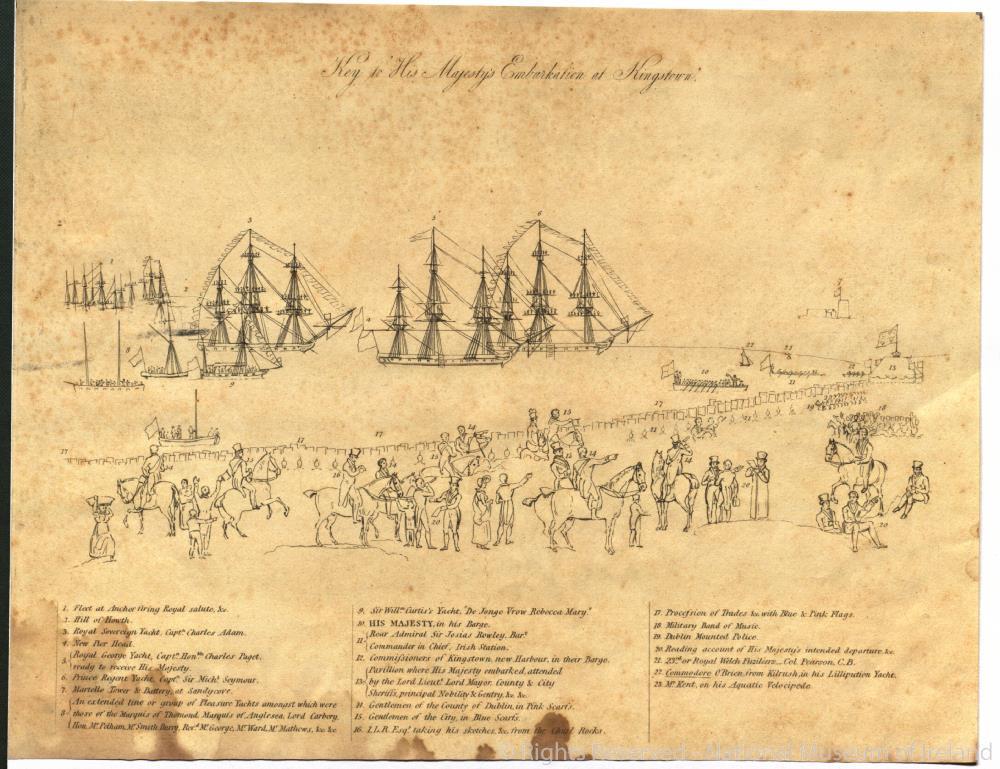 Key to "His Majesty's Embarkation at Kingstown."
1. Fleet at Anchor firing Royal salute, &c.
2. Hill of Howth.
3. Royal Sovereign Yacht, Captn. Charles Adam.
4. New Pier Head.
5. Royal George Yacht, Captn. Honble. Charles Paget,
ready to receive His Majesty.
6. Prince Regent Yacht, Captn. Sir Michl. Seymour.
7. Martello Tower & Battery, at Sandycove.
8. An extended line or group of Pleasure Yachts amongst which were
those of the Marquis of Thomond, Marquis of Anglesea, Lord Carbery,
Hon. Mr. Pelham, Mr. Smith Barry, Revd. Mr. George, Mr. Ward, Mr. Mathews, &c. &c.
9. Sir Willm. Curtis's Yacht, "De Jonge Vrow Rebecca Mary."
10. HIS MAJESTY, in his Barge.
11. Rear Admiral Sir Josias Rowley, Bart.
Commander in Chief, Irish Station.
12. Commissioners of Kingstown, new Harbour, in their Barge.
13. Pavilion where His Majesty embarked, attended
by the Lord Lieut. Lord Mayor, County & City
Sheriffs, principal Nobility & Gentry, &c. &c.
14. Gentlemen of the County of Dublin, in Pink Scarfs.
15. Gentlemen of the City, in Blue Scarfs.
16. I.L.R. Esqr. taking his sketches, &c. from the Churl Rocks.
17. Procession of Trades &c. with Blue & Pink Flags.
18. Military Band of Music.
19. Dublin Mounted Police.
20. Reading account of His Majesty's intended departure, &c.
21. 23rd or Royal Welch Fuziliers _ Col. Pearson, C.B.
22. Commodore O'Brien, from Kilrush, in his Lilliputian Yacht.
23. Mr. Kent, on his Aquatic Velocipede.
© Rights Reserved - National Museum of Ireland